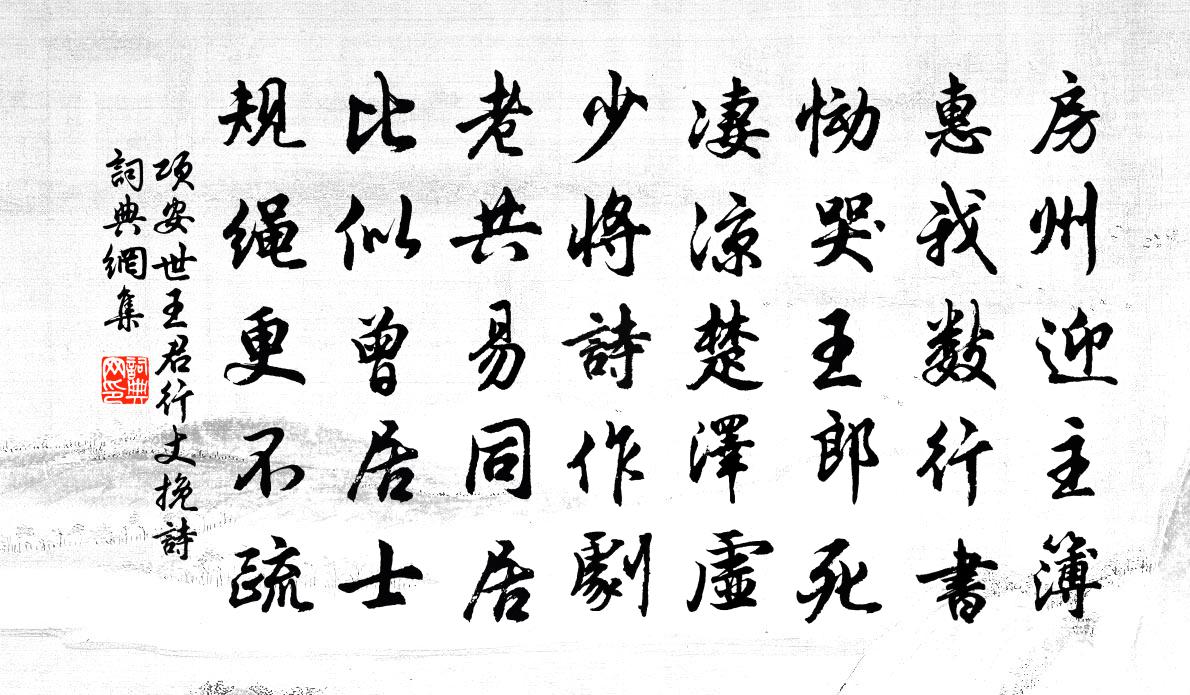 房州迎主簿
惠我数行書
恸哭王郎死
凄涼楚澤虛
少將詩作劇
老共易同居
比似曾居士
规绳更不疏
項安世王君行丈挽詩
詞典網集
詞典
网印